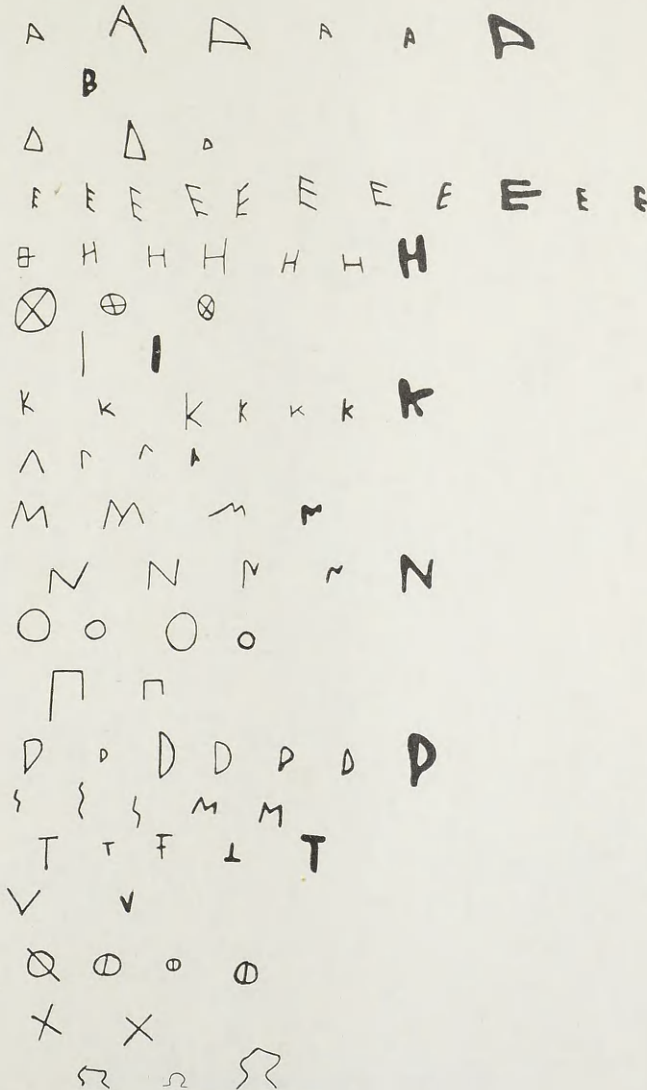 Α Α Α Α Α Α
Β
Δ Δ Δ
Ε Ε Ε Ε Ε Ε Ε Ε Ε Ε Ε
Η Η Η Η Η Η Η
⊗ ⊕ ⊗
Ι Ι
Κ Κ Κ Κ Κ Κ Κ
Λ Λ Λ Λ
Μ Μ Μ Μ
Ν Ν Ν Ν Ν
Ο Ο Ο Ο
Π Π
Ρ Ρ Ρ Ρ Ρ Ρ Ρ
Σ Σ Σ Σ Σ
Τ Τ Τ Τ Τ
V V
Φ Φ Φ Φ
Χ Χ
Ω Ω Ω